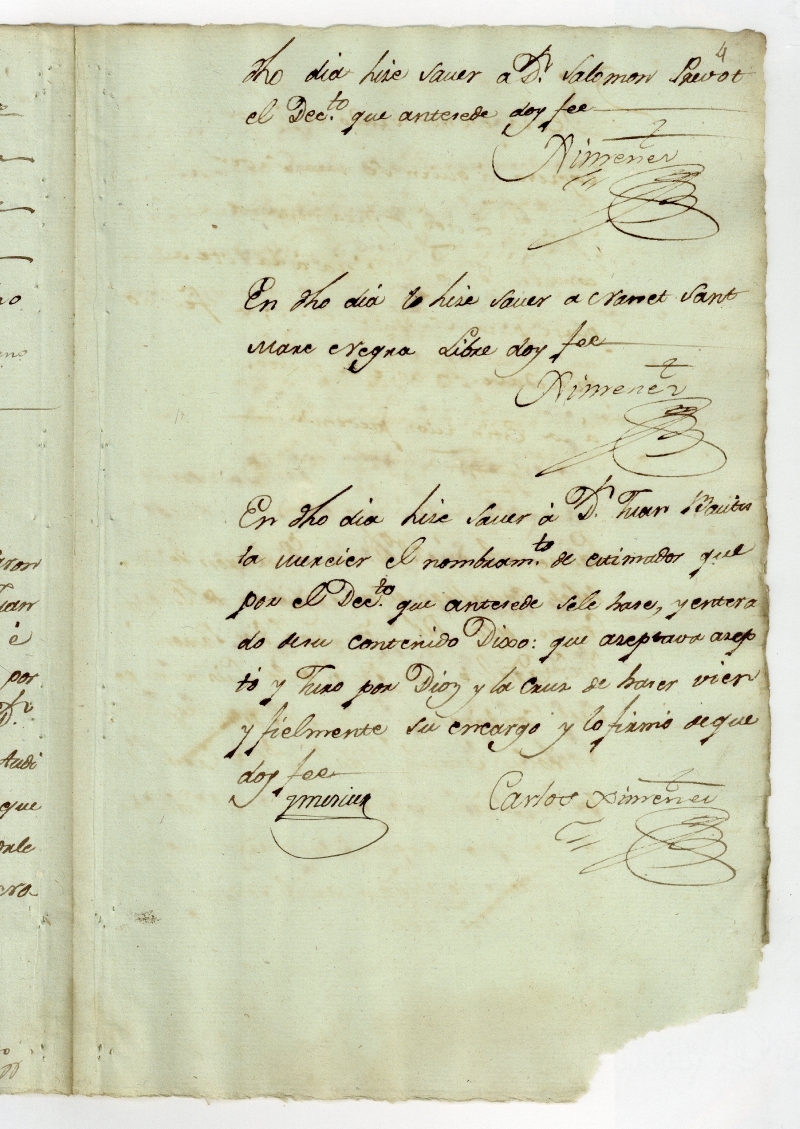 4
dho dia hize saver a Dn. Salomon Prevot
el Decto. que antesede doy fee
Ximenez
En dho dia lo hize saver a Nanet Sant
Marc Negra Libre doy fee
Ximenez
En dho dia hize saver à Dn. Juan Bautis
ta Mercier el nombramto. de estimador que
por el Decto. que antesede sele hase, y entera
do desu contenido Dixo: que aseptava asep
tó y Juro por Dios y la Cruz de haser vien
y fielmente su encargo y lo firmó deque
doy fee
Jmercier
Carlos Ximenez
uan
è
por
Dn.
Audi
que